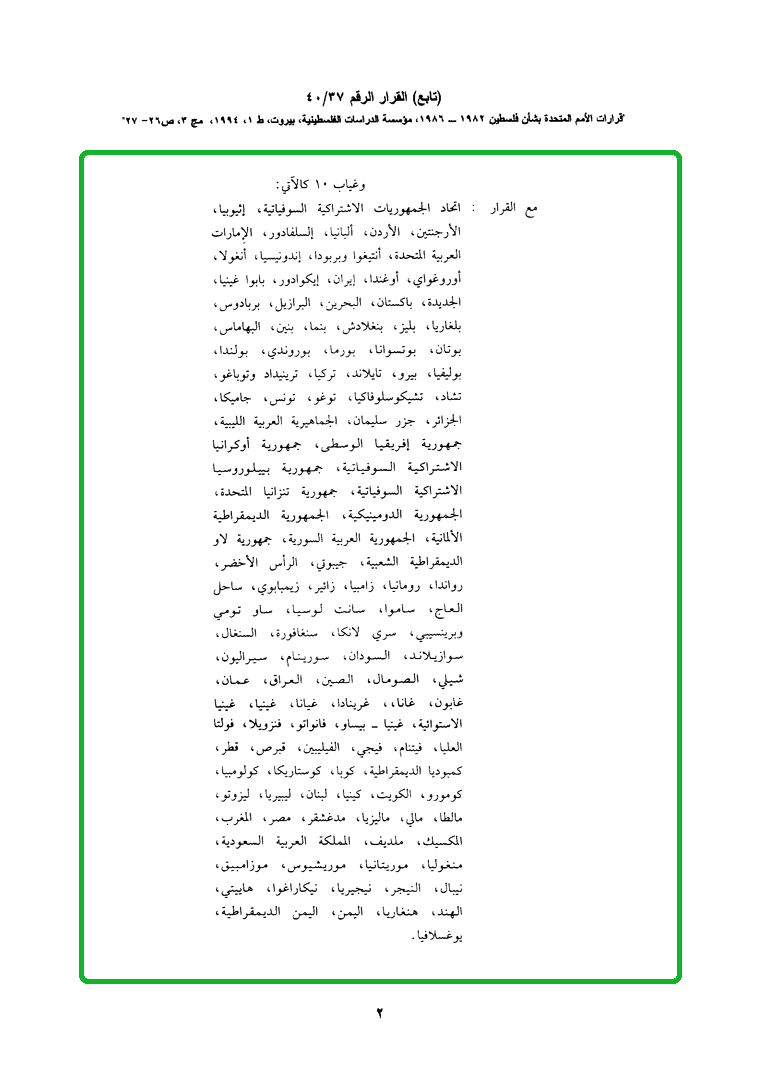 (تابع) القرار الرقم ٤٠/٣٧
"قرارات الأمم المتحدة بشأن فلسطين ١٩٨٢ ــ ١٩٨٦، مؤسسة الدراسات الفلسطينية، بيروت، ط ١، ١٩٩٤، مج ٣، ص٢٦- ٢٧"
وغياب ١٠ كالآتي:
مع القرار : اتحاد الجمهوريات الاشتراكية السوفياتية، إثيوبيا،
الأرجنتين، الأردن، ألبانيا، إلسلفادور، الإمارات
العربية المتحدة، أنتيغوا وبربودا، إندونيسيا، أنغولا،
أوروغواي، أوغندا، إيران، إيكوادور، بابوا غينيا،
الجديدة، باكستان، البحرين، البرازيل، بربادوس،
بلغاريا، بليز، بنغلادش، بنما، بنين، البهاماس،
بوتان، بوتسوانا، بورما، بوروندي، بولندا،
بوليفيا، بيرو، تايلاند، تركيا، ترينيداد وتوباغو،
تشاد، تشيكوسلوفاكيا، توغو، تونس، جاميكا،
الجزائر، جزر سليمان، الجماهيرية العربية الليبية،
جمهورية إفريقيا الوسطى، جمهورية أوكرانيا
الاشتراكية السوفياتية، جمهورية بييلوروسيا
الاشتراكية السوفياتية، جمهورية تنزانيا المتحدة،
الجمهورية الدومينيكية، الجمهورية الديمقراطية
الألمانية، الجمهورية العربية السورية، جمهورية لاو
الديمقراطية الشعبية، جيبوتي، الرأس الأخضر،
رواندا، رومانيا، زامبيا، زائير، زيمبابوي، ساحل
العاج، ساموا، سانت لوسيا، ساو تومي
وبرينسيبي، سري لانكا، سنغافورة، السنغال،
سوازيلاند، السودان، سورينام، سيراليون،
شيلي، الصومال، الصين، العراق، عمان،
غابون، غانا،، غرينادا، غيانا، غينيا، غينيا
الاستوائية، غينيا ـ بيساو، فانواتو، فنزويلا، فولتا
العليا، فيتنام، فيجي، الفيليبين، قبرص، قطر،
كمبوديا الديمقراطية، كوبا، كوستاريكا، كولومبيا،
كومورو، الكويت، كينيا، لبنان، ليبيريا، ليزوتو،
مالطا، مالي، ماليزيا، مدغشقر، مصر، المغرب،
المكسيك، ملديف، المملكة العربية السعودية،
منغوليا، موريتانيا، موريشيوس، موزامبيق،
نيبال، النيجر، نيجيريا، نيكاراغوا، هاييتي،
الهند، هنغاريا، اليمن، اليمن الديمقراطية،
يوغسلافيا.
٢